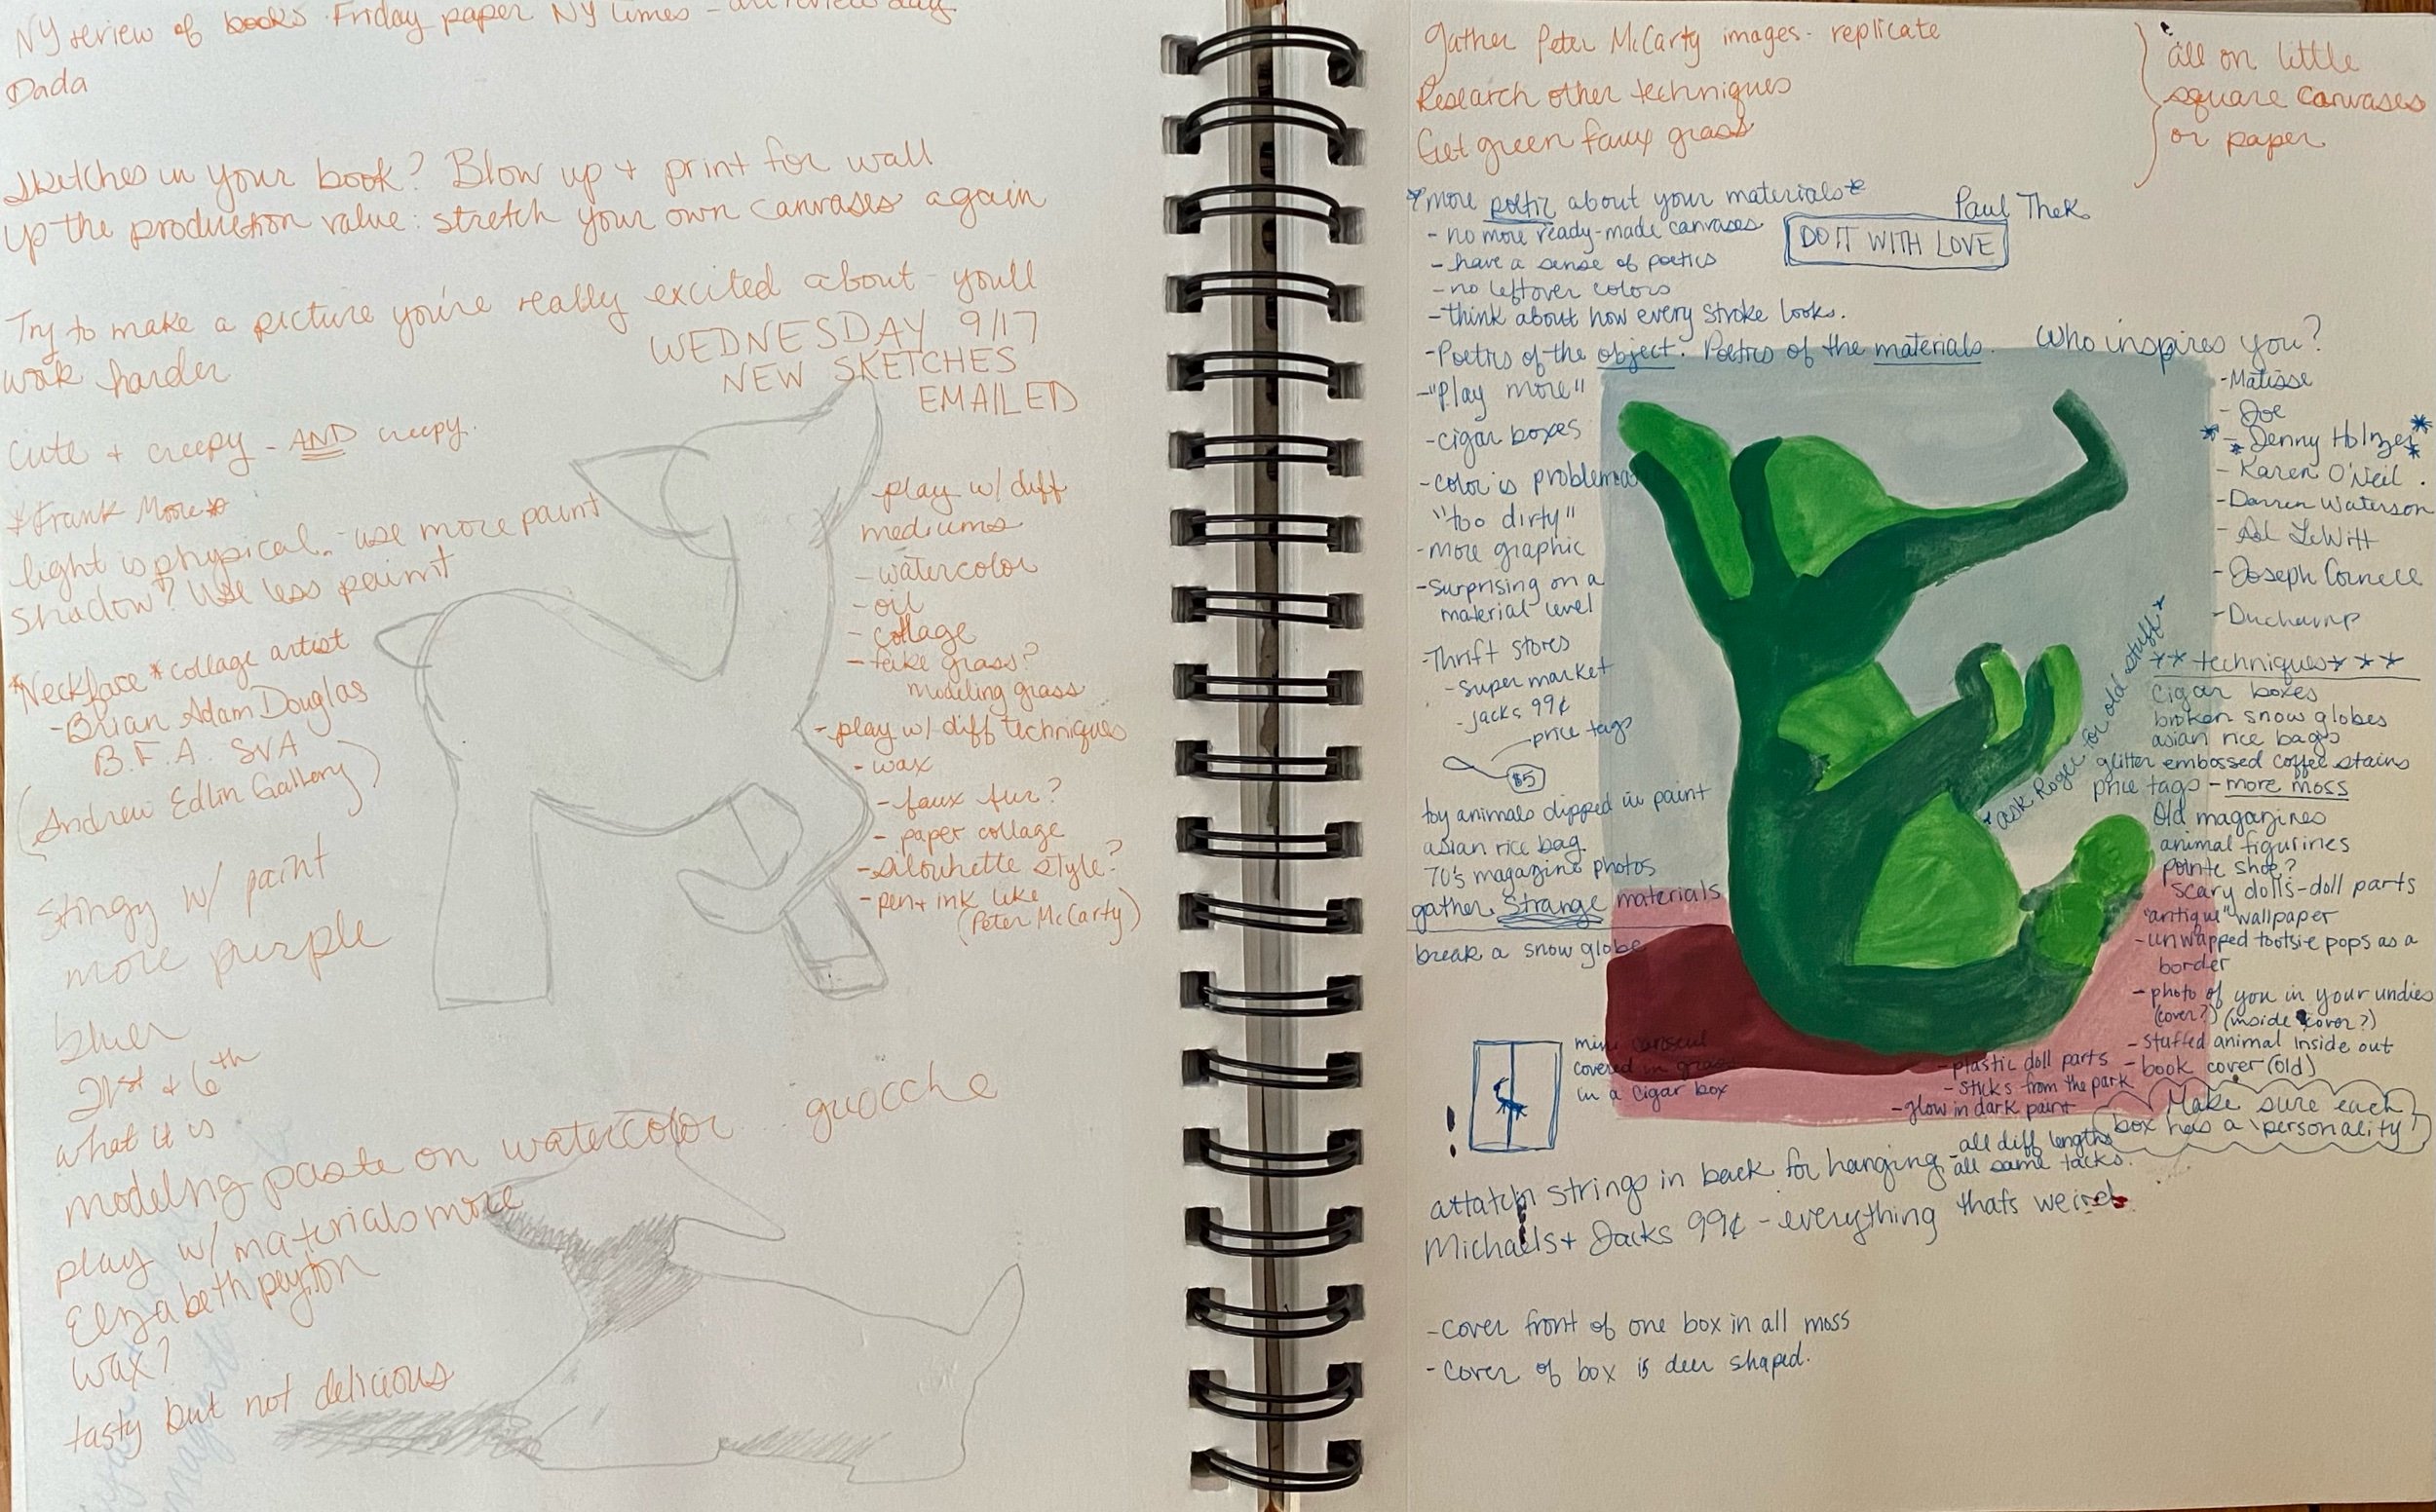 NY review of books Friday paper NY Times - art review day
Dada
Sketches in your book? Blow up + print for wall
up the production value: stretch your own canvases again
Try to make a picture you're really excited about - youll
work harder
WEDNESDAY 9/17
NEW SKETCHES
EMAILED
Cute + creepy - AND creepy.
*Frank Moore*
light is physical. - use more paint
shadow? Use less paint
*Neckface* collage artist
- Brian Adam Douglas
B.F.A. SVA
(Andrew Edlin Gallery)
stingy w/ paint
more purple
bluer
21st & 6th
what it is
modeling paste on watercolor guocche
play w/ materials more
Elizabeth peyton
wax?
tasty but not delicious
- play w/ diff
mediums
- watercolor
- oil
- collage
- fake grass?
modeling grass
- play w/ diff techniques
- wax
- faux fur?
- paper collage
- silouhette style?
- pen + ink like
(Peter McCarty)
gather Peter McCarty images - replicate
Research other techniques
Get green faux grass
all on little
square canvases
or paper
*more poetic about your materials*
- no more ready-made canvases
- have a sense of poetics
- no leftover colors
- think about how every stroke looks.
Paul Thek
DO IT WITH LOVE
- Poetics of the object. Poetics of the materials.
- "Play more"
- cigar boxes
- color is problema
"too dirty"
- more graphic
- surprising on a
material level
- Thrift stores
- super market
- jacks 99¢
- price tags
$5
toy animals dipped in paint
asian rice bag
70's magazine photos
gather Strange materials
break a snow globe
Who inspires you?
- Matisse
- Joe
* - Jenny Holzer *
- Karen O'Neil.
- Darren Waterson
- Sol LeWitt
- Joseph Cornell
- Duchamp
*ask Roger for old stuff*
** techniques ***
cigar boxes
broken snow globes
asian rice bags
glitter embossed coffee stains
price tags - more moss
Old magazines
animal figurines
pointe shoe?
scary dolls - doll parts
"antique" wallpaper
- unwapped tootsie pops as a
border
- photo of you in your undies
(cover?) (inside cover?)
- stuffed animal inside out
- book cover (old)
- plastic doll parts
- sticks from the park
- glow in dark paint
Make sure each
box has a personality
mini caroseul
covered in grass
in a cigar box
!
attatch strings in back for hanging - all diff lengths
all same tacks.
Michaels + Jacks 99¢ - everything thats weird
- cover front of one box in all moss
- cover of box is deer shaped.